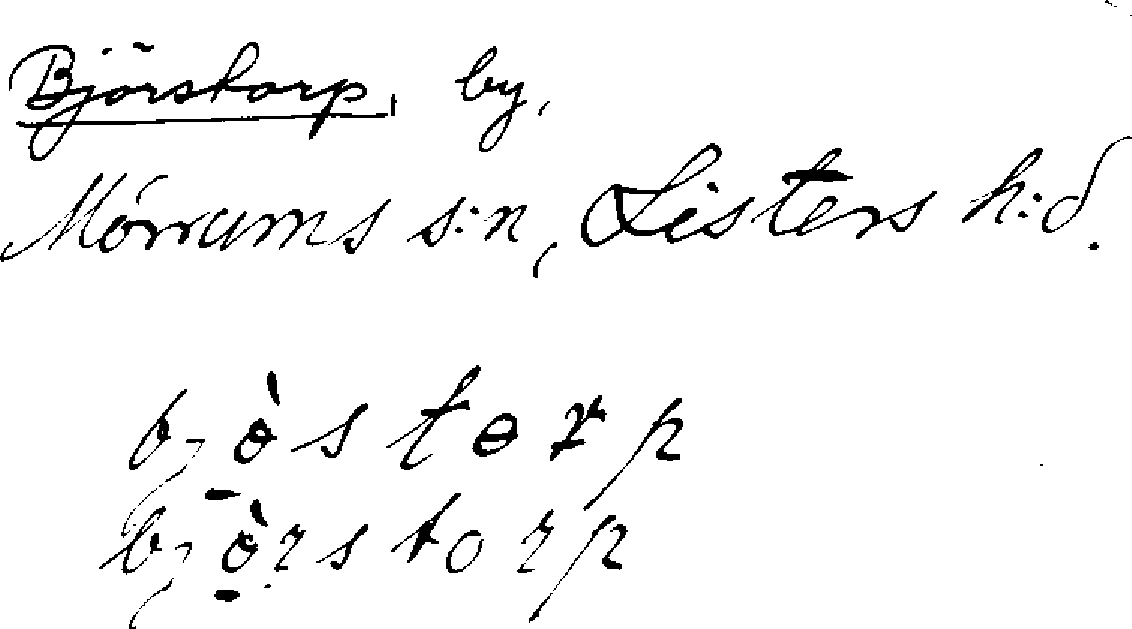 Björstorp, by,
Mörrums s:n, Listers h:d.
bjòstərp
bjòrstorp